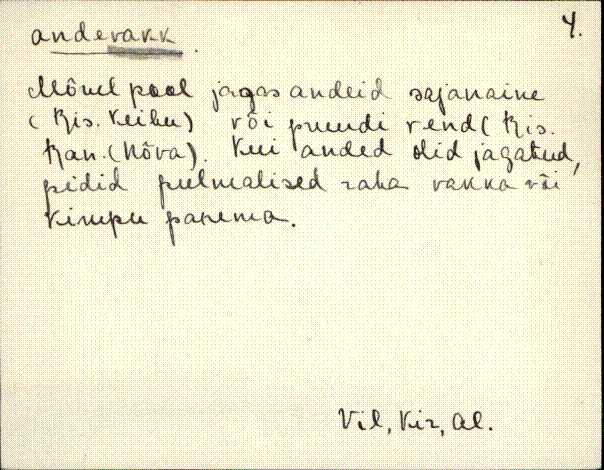 4.
andevakk.
Mõnel pool jagas andeid sajanaine
(Ris. Keibu) või pruudi vend (Ris.
Ran. (Nõva). Kui anded olid jagatud,
pidid pulmalised raha vakka või
kimpu panema.
Vil, Kir, Al.